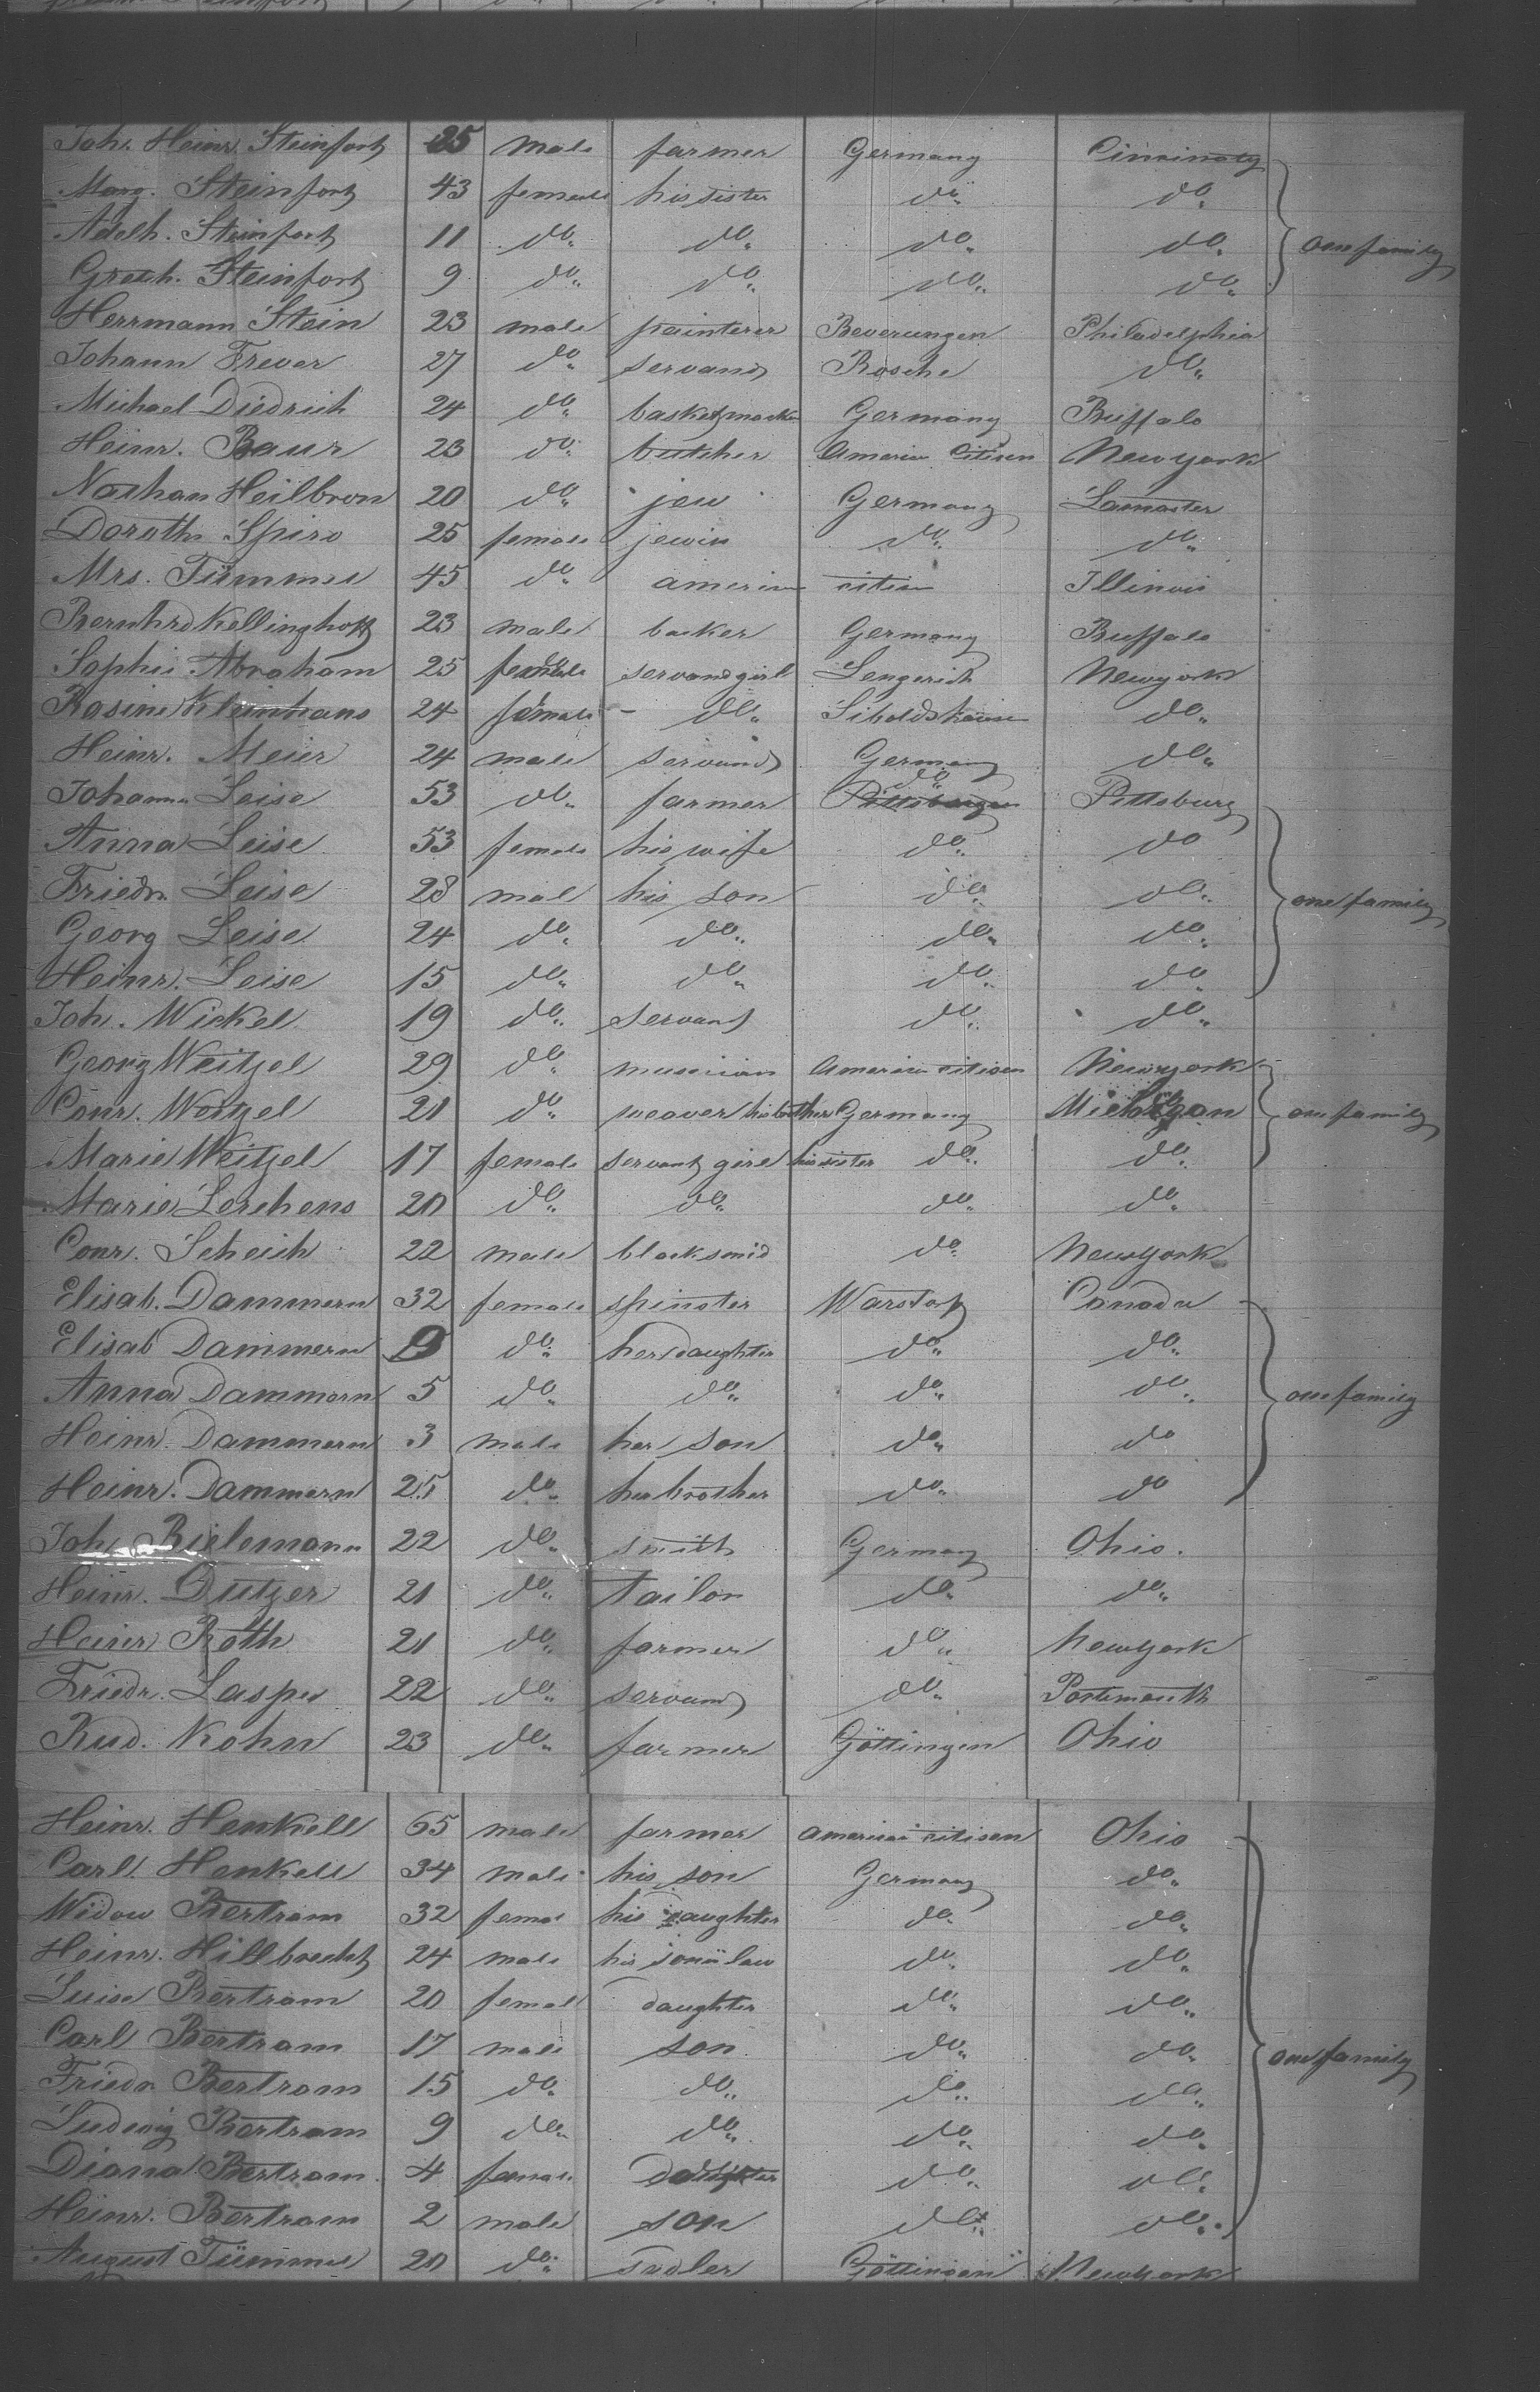 Joh. Heinr. Steinfort 35 male farmer Germany Cincinaty
Marg. Steinfort 43 female his sister do do
Adelh. Steinfort 11 do do do do one family
Gresh. Steinfort 9 do do do do
Herrmann Stein 23 male painterer Beverungen Philadelphia
Johann Frever 27 do servand Rosche do
Michael Diedrich 24 do basketmacker Germany Buffalo
Heinr. Baur 23 do butcher Americ Citisen Newyork
Nathan Heilbron 20 do jew Germany Lancaster
Doroth Spiro 25 female jewin do do
Mrs. Tümmel 45 do americ citisen Illinois
Bernhrd Kellinghoff 23 male backer Germany Buffalo
Sophie Abraham 25 female servandgirl Lengerich Newyork
Rosine Kleinhans 24 female do Siboldshausen do
Heinr. Meier 24 male servand Germany do
Johann Leise 53 do farmer do Pittsburg
Anna Leise 53 female his wife do do
Friedr. Leise 28 mal his son do do one family
Georg Leise 24 do do do do
Heinr. Leise 15 do do do do
Joh. Wickel 19 do servand do do
Georg Weitzel 29 do musician American citisen Newyork
Conr. Weitzel 21 do weaver his brother Germany Michigan one family
Marie Weitzel 17 female servant girl his sister do do
Marie Lerchens 20 do do do do
Conr. Scheich 22 male blacksmid do Newyork
Elisab. Dammern 32 female spinster Warstorf Canada
Elisab Dammern 9 do her daughter do do
Anna Dammern 5 do do do do one family
Heinr. Dammern 3 male her son do do
Heinr. Dammern 25 do her brother do do
Joh Bielemann 22 do smith Germany Ohio.
Heinr. Dutzer 21 do tailor do do
Heinr Roth 21 do farmer do Newyork
Friedr. Laspe 22 do servand do Portsmouth
Rud. Kohn 23 do farmer Göttingen Ohio
Heinr. Henkell 65 male farmer american citisen Ohio
Carl Henkell 34 male his son Germany do
Widow Bertram 32 femal his daughter do do
Heinr. Hillbrecht 24 male his soninlaw do do
Luise Bertram 20 femal daughter do do
Carl Bertram 17 male son do do one family
Friedr Bertram 15 do do do do
Ludewig Bertram 9 do do do do
Diana Bertram 4 female daughter do do
Heinr. Bertram 2 male son do do
August Tümmel 20 do sadler Göttingen Newyork